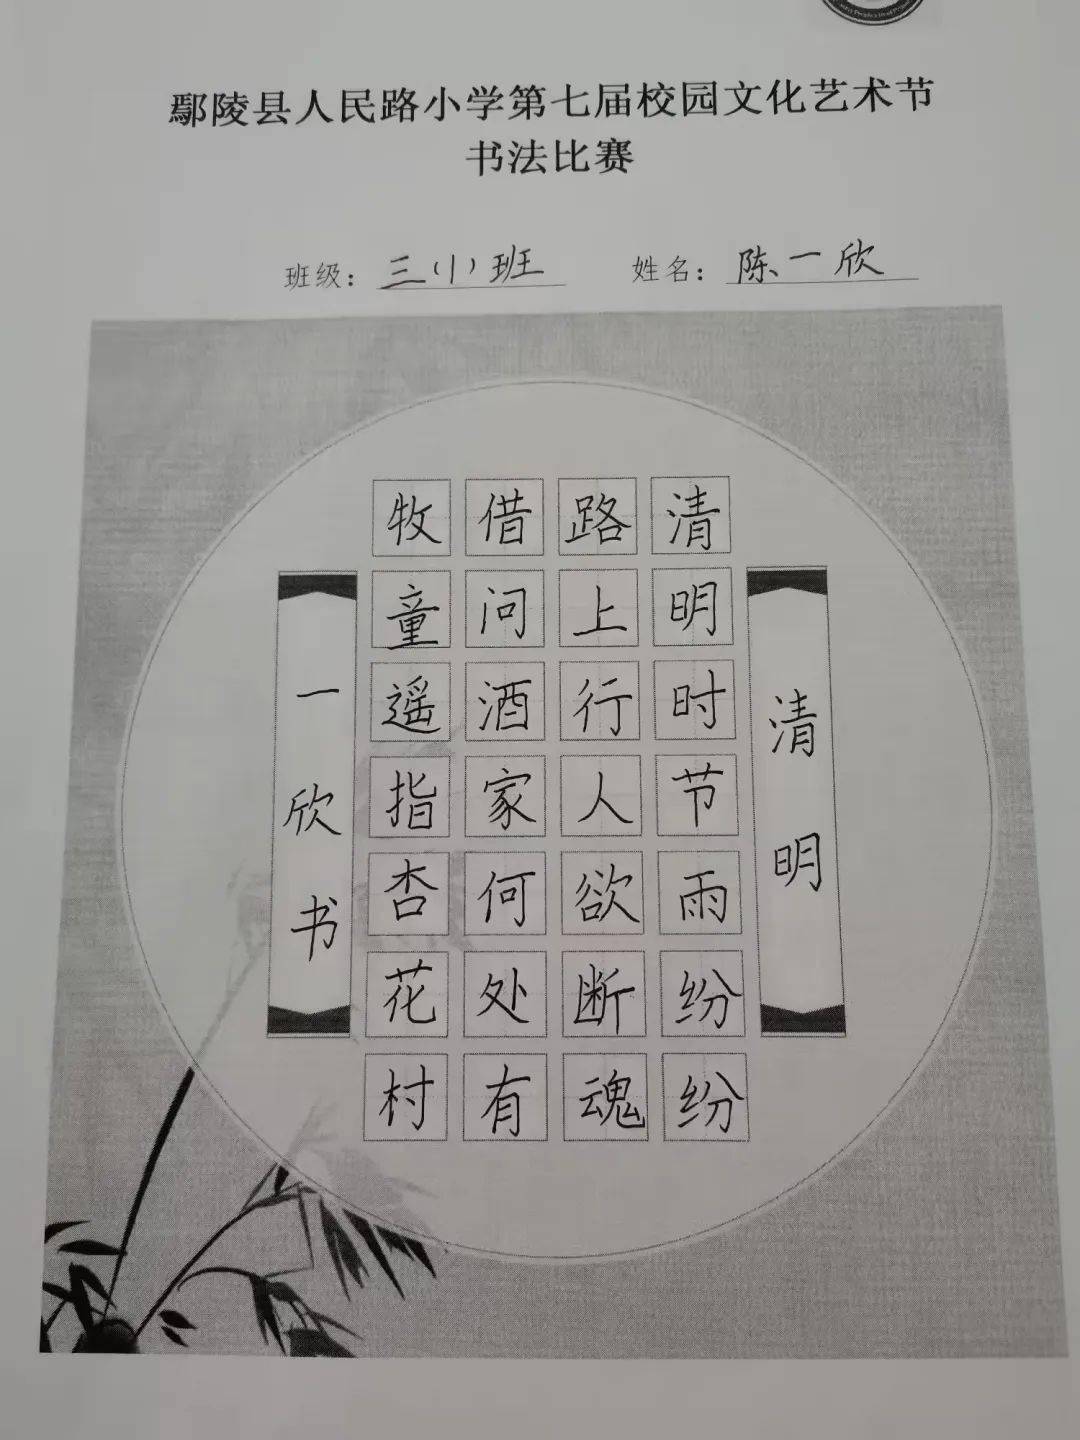 鄢陵县人民路小学第七届校园文化艺术节
书法比赛
班级：三（1）班 姓名：陈一欣
清明
清明时节雨纷纷
路上行人欲断魂
借问酒家何处有
牧童遥指杏花村
一欣书